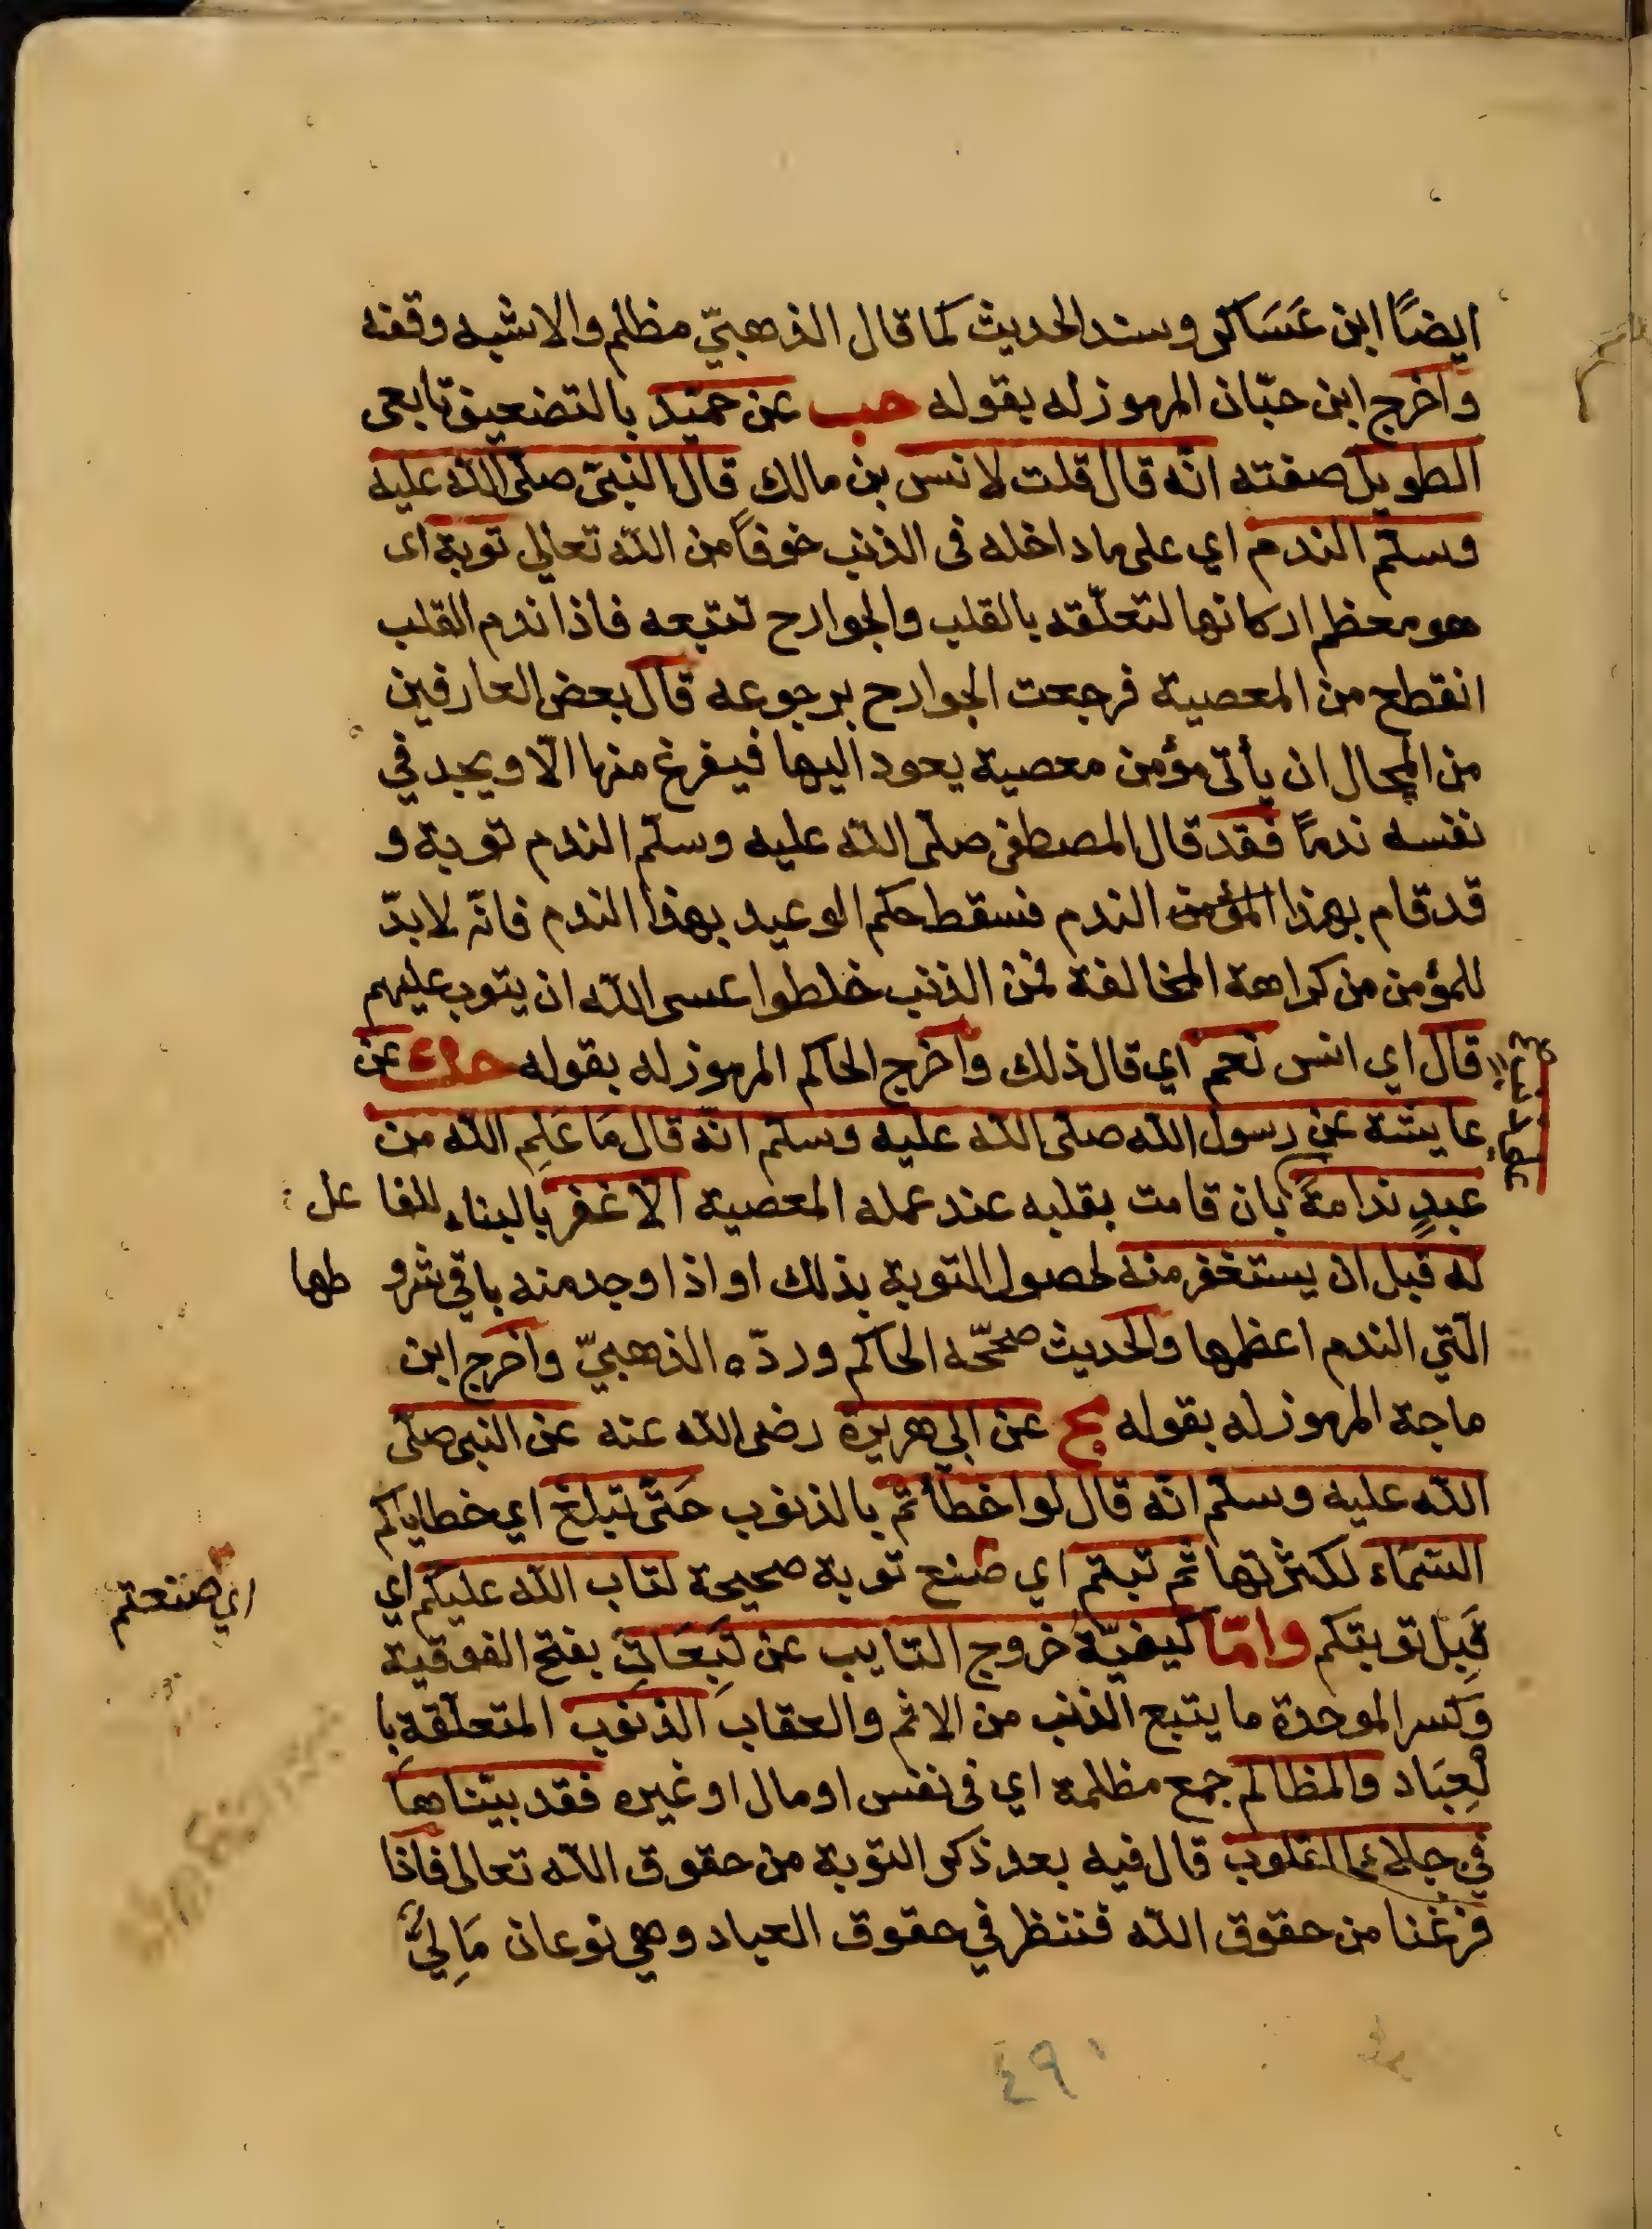 ايضًا ابن عَسَاكر وسند الحديث كما قال الذهبيّ مظلم والاشبه وقفه
وأخرج ابن حبّان المرموز له بقوله حب عن حميد بالتضعيف تابعى
الطويل صفته انّه قال قلت لانس بن مالكٍ قال النبىّ صلى الله عليه
وسلّم الندم اي على ما داخله فى الذنب خوفاً من الله تعالى توبة اى
هو معظم اركانها لتعلّقه بالقلب والجوارح تتبعه فاذا ندم القلب
انقطع من المعصية فرجعت الجوارح برجوعه قال بعض العارفين
من المحال ان يأتى مؤمن معصية يعود اليها فيفرغ منها الّا ويجد في
نفسه ندمًا فقد قال المصطفى صلّى الله عليه وسلّم الندم توبة و
قد قام بهذا المؤمن الندم فسقط حكم الوعيد بهذا الندم فانّه لا بدّ
للمؤمن من كراهة المخالفة فمن الذنب خلطوا عسى الله ان يتوب عليهم
قال اي انس نعم اي قال ذلك وأخرج الحاكم المرموز له بقوله حك عن
عايشة عن رسول الله صلى الله عليه وسلّم انّه قال مَا عَلِم الله من
عبدٍ ندامةً بان قامت بقلبه عند عمله المعصية الّا غفر بالبناء للفاعل
له قبل ان يستغفر منه لحصول التوبة بذلك او اذا وجد منه باقي شروطها
الّتي الندم اعظمها والحديث صحّحه الحاكم وردّه الذهبيّ وأخرج ابن
ماجة المرموز له بقوله مج عن ابي هريرة رضى الله عنه عن النبى صلّى
الله عليه وسلّم انّه قال لو اخطأتم بالذنوب حَتّى تبلغ اي خطاياكم
السَّمَاء لكثرتها ثم تبتم اي صنع توبة صحيحة لتاب الله عليكم اي
اي صنعتم
قَبِل توبتكم وامّا كيفيّة خروج التايب عن تَبِعَاتِ بفتح الفوقية
وكسر الموحدة ما يتبع الذنب من الاثم والعقاب الذنوب المتعلّقة با
لعِبَاد والمظالم جمع مظلمة اي فى نفس او مال او غيره فقد بيّناها
في جلاء القلوب قال فيه بعد ذكر التوبة من حقوق الله تعالى فاذا
فرغنا من حقوق الله فننظر في حقوق العباد وهي نوعان مَالِيٌّ
٤٩٠